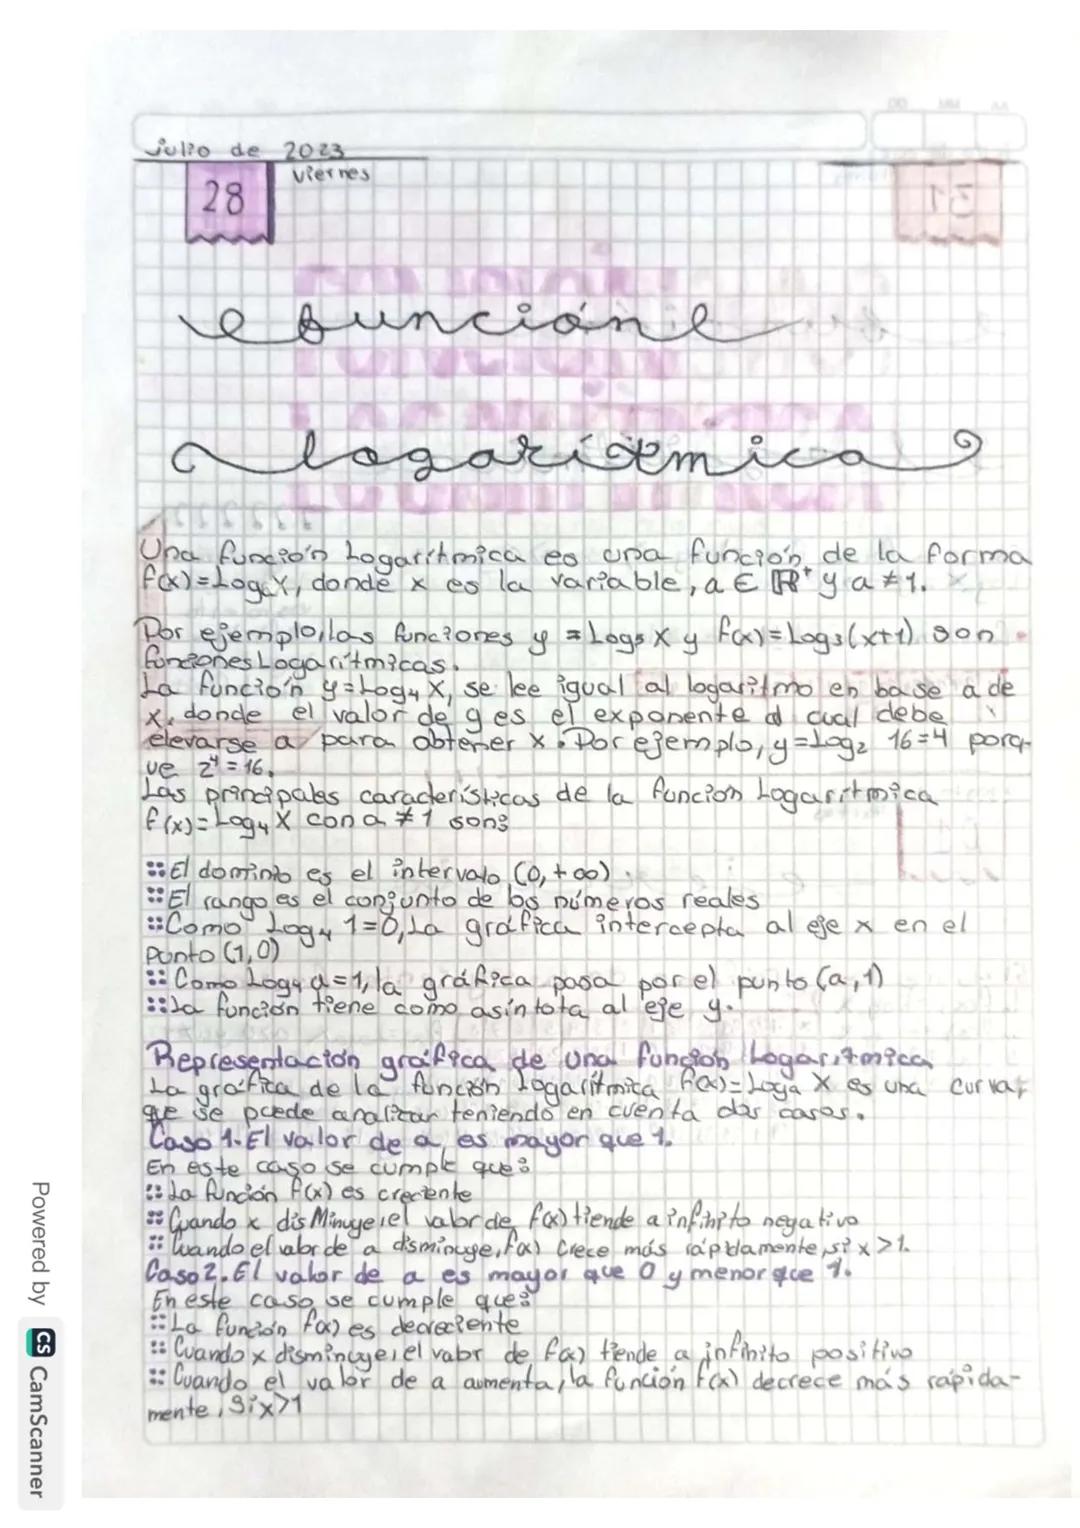 Julio de 2023
viernes
28
función
logarítmica
Una función Logarítmica es una función de la forma
f(x)=LogaX, donde x es la variable, a ∈ ℝ⁺ y a ≠ 1.
Por ejemplo, las funciones y = Log5 X y f(x)=Log3(x+1) son
funciones Logarítmicas.
La función y=Log4 X, se lee igual al logaritmo en base a de
x, donde el valor de y es el exponente al cual debe
elevarse a para obtener x. Por ejemplo, y=Log2 16=4 porq-
ue 2⁴=16.
Las principales características de la función Logarítmica
f(x)=Log4 X con a ≠ 1 son:
:: El dominio es el intervalo (0,+∞).
:: El rango es el conjunto de los números reales
:: Como Log4 1=0, La gráfica intercepta al eje x en el
punto (1,0)
:: Como Log4 a=1, la gráfica pasa por el punto (a,1)
:: La función tiene como asíntota al eje y.
Representación gráfica de una función Logarítmica
La gráfica de la función Logarítmica f(x)=Loga X es una curva,
que se puede analizar teniendo en cuenta dos casos.
Caso 1. El valor de a es mayor que 1.
En este caso se cumple que:
:: La función f(x) es creciente
:: Cuando x disMinuye, el valor de f(x) tiende a infinito negativo
:: Cuando el valor de a disminuye, f(x) crece más rápidamente, si x>1.
Caso 2. El valor de a es mayor que 0 y menor que 1.
En este caso se cumple que:
:: La función f(x) es decreciente
:: Cuando x disminuye, el valor de f(x) tiende a infinito positivo
:: Cuando el valor de a aumenta, la función f(x) decrece más rápida-
mente, si x>1
Powered by CS CamScanner